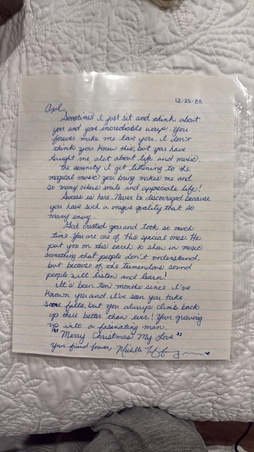 12-25-88
Sometimes I just sit and think about
you and your incredible ways. You
forever make me love you. I don't
think you know this, but you have
taught me alot about life and music.
The serenity I get listening to the
magical music you bring makes me and
so many others smile and appreciate life!
Success is here. Never be discouraged because
you have such a unique quality that so
many envy.
God created you and took so much
time. You are one of his special ones. He
put you on this earth to show in music
something that people don't understand,
but because of the tremendous sound
people will listen and learn!
It's been ten months since I've
known you and I've seen you take
some falls, but you always climb back
up there better than ever! Your growing
up into a fascinating man.
"Merry Christmas My Love"
Your friend forever, Michelle